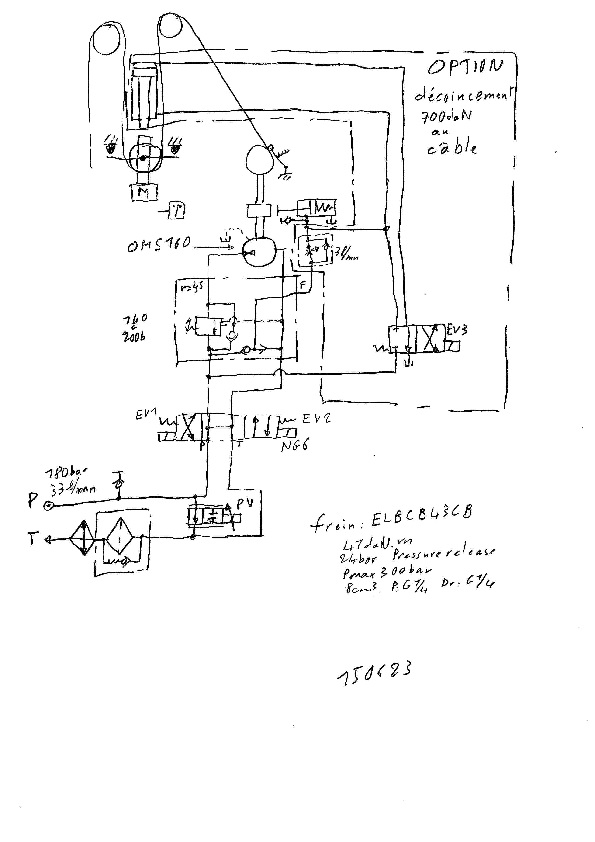 OPTION
décoincement
700daN
au
câble
M
T
OMS160
3ℓ/mn
F
140
à
200b
EV3
EV1
EV2
P
T
NG6
180bar
33ℓ/mn
P
PV
T
frein: ELBCB43CB
47daN.m
24bar Pressure release
Pmax 300bar
8cm3 P.G1/4 Dr: G1/4